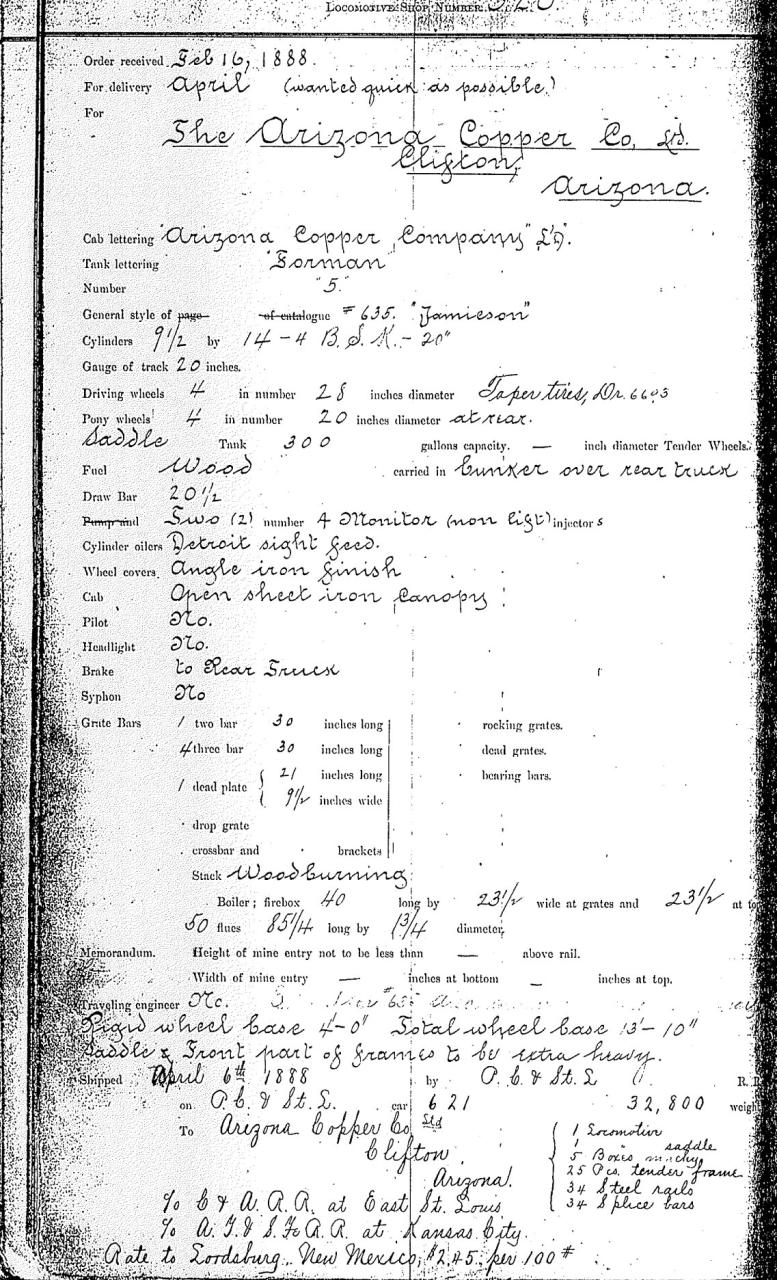 LOCOMOTIVE SHOP NUMBER
Order received Feb 16, 1888.
For delivery April (wanted quick as possible.)
For
The Arizona Copper Co, Ltd.
Clifton,
Arizona.
Cab lettering "Arizona Copper Company" L'd.
Tank lettering "Forman"
Number "5."
General style of page of catalogue # 635. "Jamieson"
Cylinders 9 1/2 by 14 - 4 B. S. K. - 20"
Gauge of track 20 inches.
Driving wheels 4 in number 28 inches diameter Taper tires, Dr. 6693
Pony wheels 4 in number 20 inches diameter at rear.
Saddle Tank 300 gallons capacity. — inch diameter Tender Wheels.
Fuel Wood carried in bunker over rear truck
Draw Bar 20 1/2
Pump and Two (2) number 4 Monitor (non lift) injectors
Cylinder oilers Detroit sight feed.
Wheel covers Angle iron finish
Cab Open sheet iron canopy
Pilot No.
Headlight No.
Brake to Rear Truck
Syphon No
Grate Bars 1 two bar 30 inches long rocking grates.
4 three bar 30 inches long dead grates.
1 dead plate { 21 inches long bearing bars.
9 1/2 inches wide
drop grate
crossbar and brackets
Stack Woodburning
Boiler; firebox 40 long by 23 1/2 wide at grates and 23 1/2 at
50 flues 85 1/4 long by 1 3/4 diameter,
Memorandum. Height of mine entry not to be less than — above rail.
Width of mine entry — inches at bottom — inches at top.
Traveling engineer No.
Rigid wheel base 4'-0" Total wheel base 13'-10"
Saddle & Front part of frames to be extra heavy.
Shipped April 6th 1888 by P. C. & St. L R. R.
on P. C. & St. L. car 621 32,800 weigh
To Arizona Copper Co Ltd
Clifton
Arizona.
1 Locomotive
1 saddle
5 Boxes mchy
25 Pcs. tender frame
34 Steel rails
34 Splice bars
c/o C & A. R.R. at East St. Louis
c/o A. T. & S. Fe R.R. at Kansas City.
Rate to Lordsburg, New Mexico, $2.45 per 100#